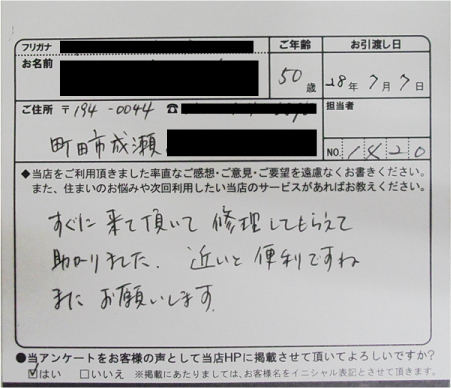 フリガナ
ご年齢
お引渡し日
お名前
50歳
28年7月7日
ご住所 〒194-0044 ☎
担当者
町田市成瀬
NO. 1820
◆当店をご利用頂きました率直なご感想・ご意見・ご要望を遠慮なくお書きください。
また、住まいのお悩みや次回利用したい当店のサービスがあればお教えください。
すぐに来て頂いて 修理してもらえて
助かりました. 近いと便利ですね
また お願いします.
●当アンケートをお客様の声として当店HPに掲載させて頂いてよろしいですか?
☑はい □いいえ ※掲載にあたりましては、お客様名をイニシャル表記とさせて頂きます。